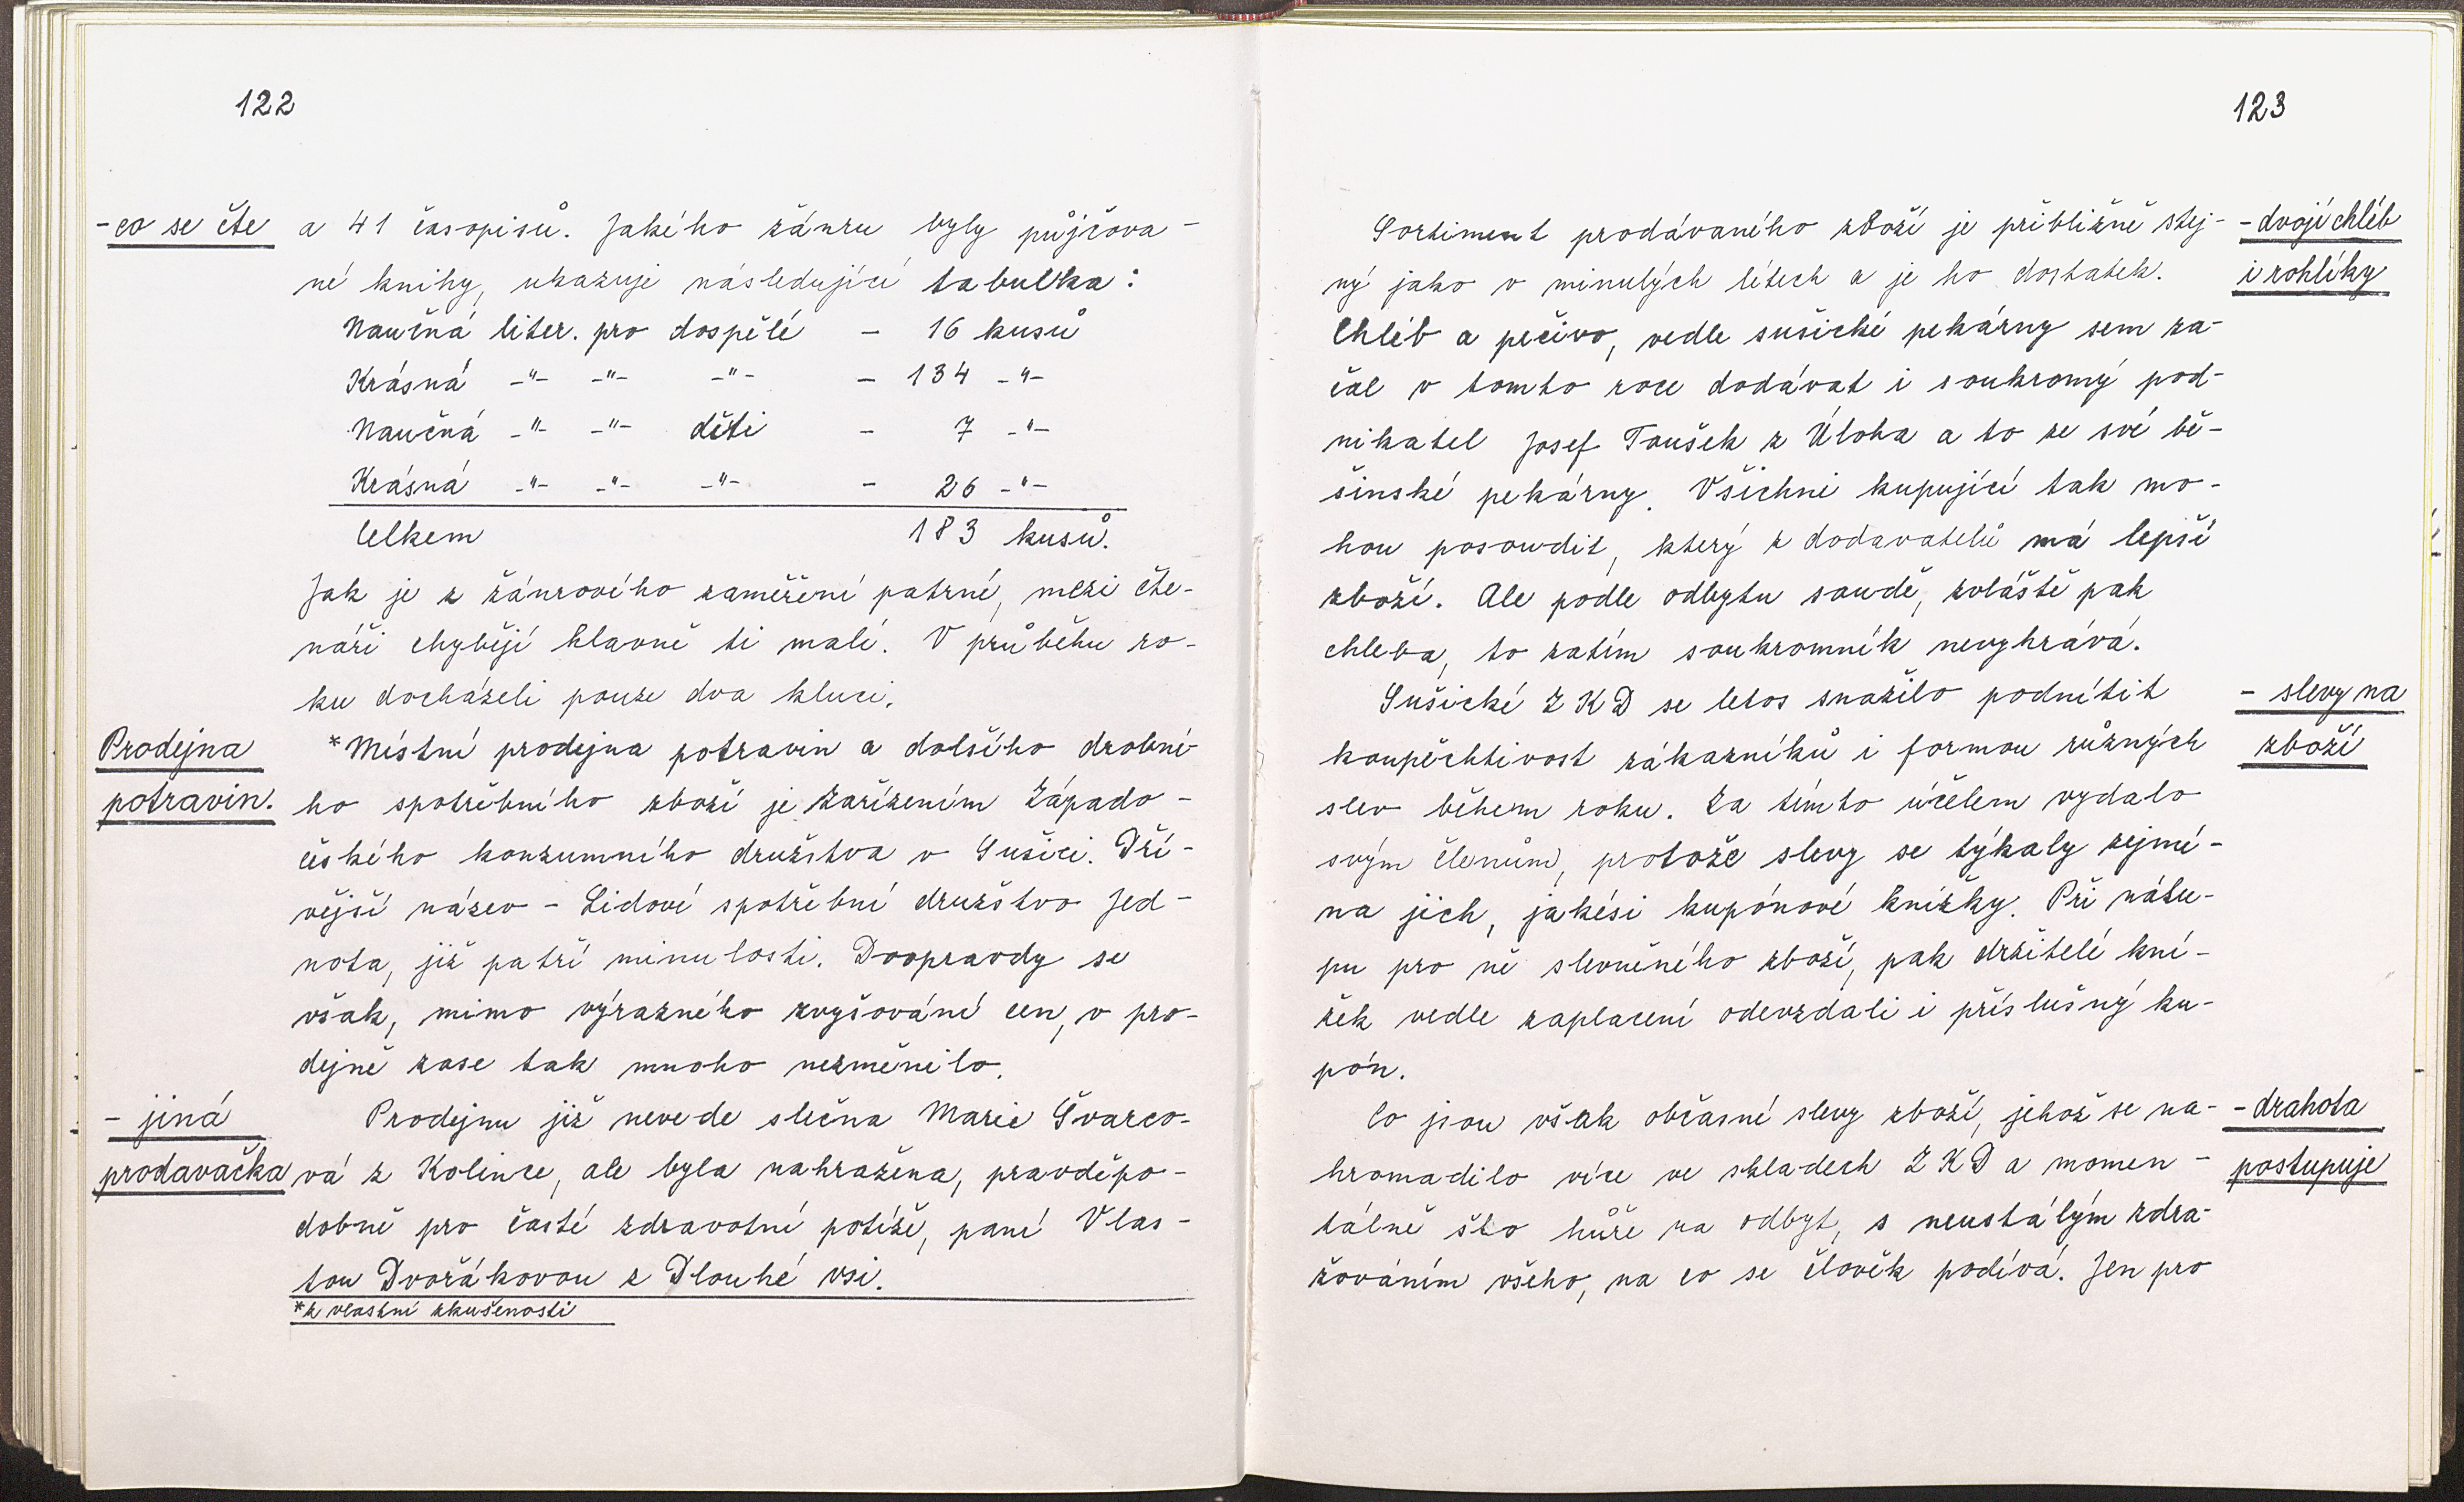 122
- co se čte a 41 časopisů. Jakého žánru byly půjčova-
né knihy, ukazuje následující tabulka:
Naučná liter. pro dospělé - 16 kusů
Krásná -"- -"- -"- - 134 -"-
Naučná -"- -"- děti - 7 -"-
Krásná -"- -"- -"- - 26 -"-
Celkem 183 kusů.
Jak je z žánrového zaměření patrné, mezi čte-
náři chybějí hlavně ti malí. V průběhu ro-
ku docházeli pouze dva kluci.
Prodejna *Místní prodejna potravin a dalšího drobné-
potravin. ho spotřebního zboží je zařízením Západo-
českého konzumního družstva v Sušici. Dří-
vější název - Lidové spotřební družstvo Jed-
nota, již patří minulosti. Doopravdy se
však, mimo výrazného zvyšování cen, v pro-
dejně zase tak mnoho nezměnilo.
- jiná Prodejnu již nevede slečna Marie Švarco-
prodavačka vá z Kolince, ale byla nahražena, pravděpo-
dobně pro časté zdravotní potíže, paní Vlas-
tou Dvořákovou z Dlouhé vsi.
*z vlastní zkušenosti
123
Sortiment prodávaného zboží je přibližně stej- - dvojí chléb
ný jako v minulých létech a je ho dostatek. i rohlíky
Chléb a pečivo, vedle sušické pekárny sem za-
čal v tomto roce dodávat i soukromý pod-
nikatel Josef Toušek z Úloha a to ze své bě-
šinské pekárny. Všichni kupující tak mo-
hou posoudit, který z dodavatelů má lepší
zboží. Ale podle odbytu soudě, zvláště pak
chleba, to zatím soukromník nevyhrává.
Sušické ZKD se letos snažilo podnítit - slevy na
koupěchtivost zákazníků i formou různých zboží
slev během roku. Za tímto účelem vydalo
svým členům, protože slevy se týkaly zejmé-
na jich, jakési kupónové knížky. Při náku-
pu pro ně slevněného zboží, pak držitelé kní-
žek vedle zaplacení odevzdali i příslušný ku-
pón.
Co jsou však občasné slevy zboží, jehož se na- - drahota
hromadilo více ve skladech ZKD a momen- postupuje
tálně šlo hůře na odbyt, s neustálým zdra-
žováním všeho, na co se člověk podívá. Jen pro